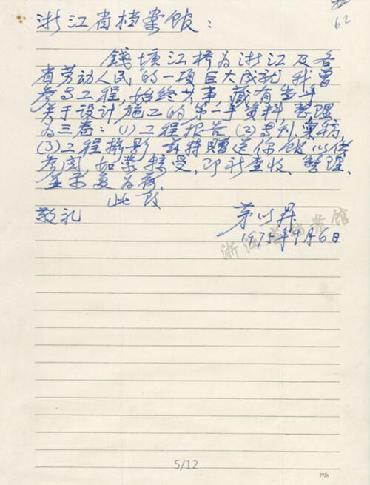 62
浙江省档案馆：
钱塘江桥为浙江及各
省劳动人民的一项巨大成就，我曾
参与工程，始终其事，藏有若干
关于设计施工的第一手资料，整理
为三卷：(1)工程报告(2)
(3)工程摄影，兹特赠送你馆，以供
参阅，如蒙接受，即祈查收，整理，
并示复为荷。
此致
敬礼
茅以昇
1975年9月6日
浙江省档案馆
5/12